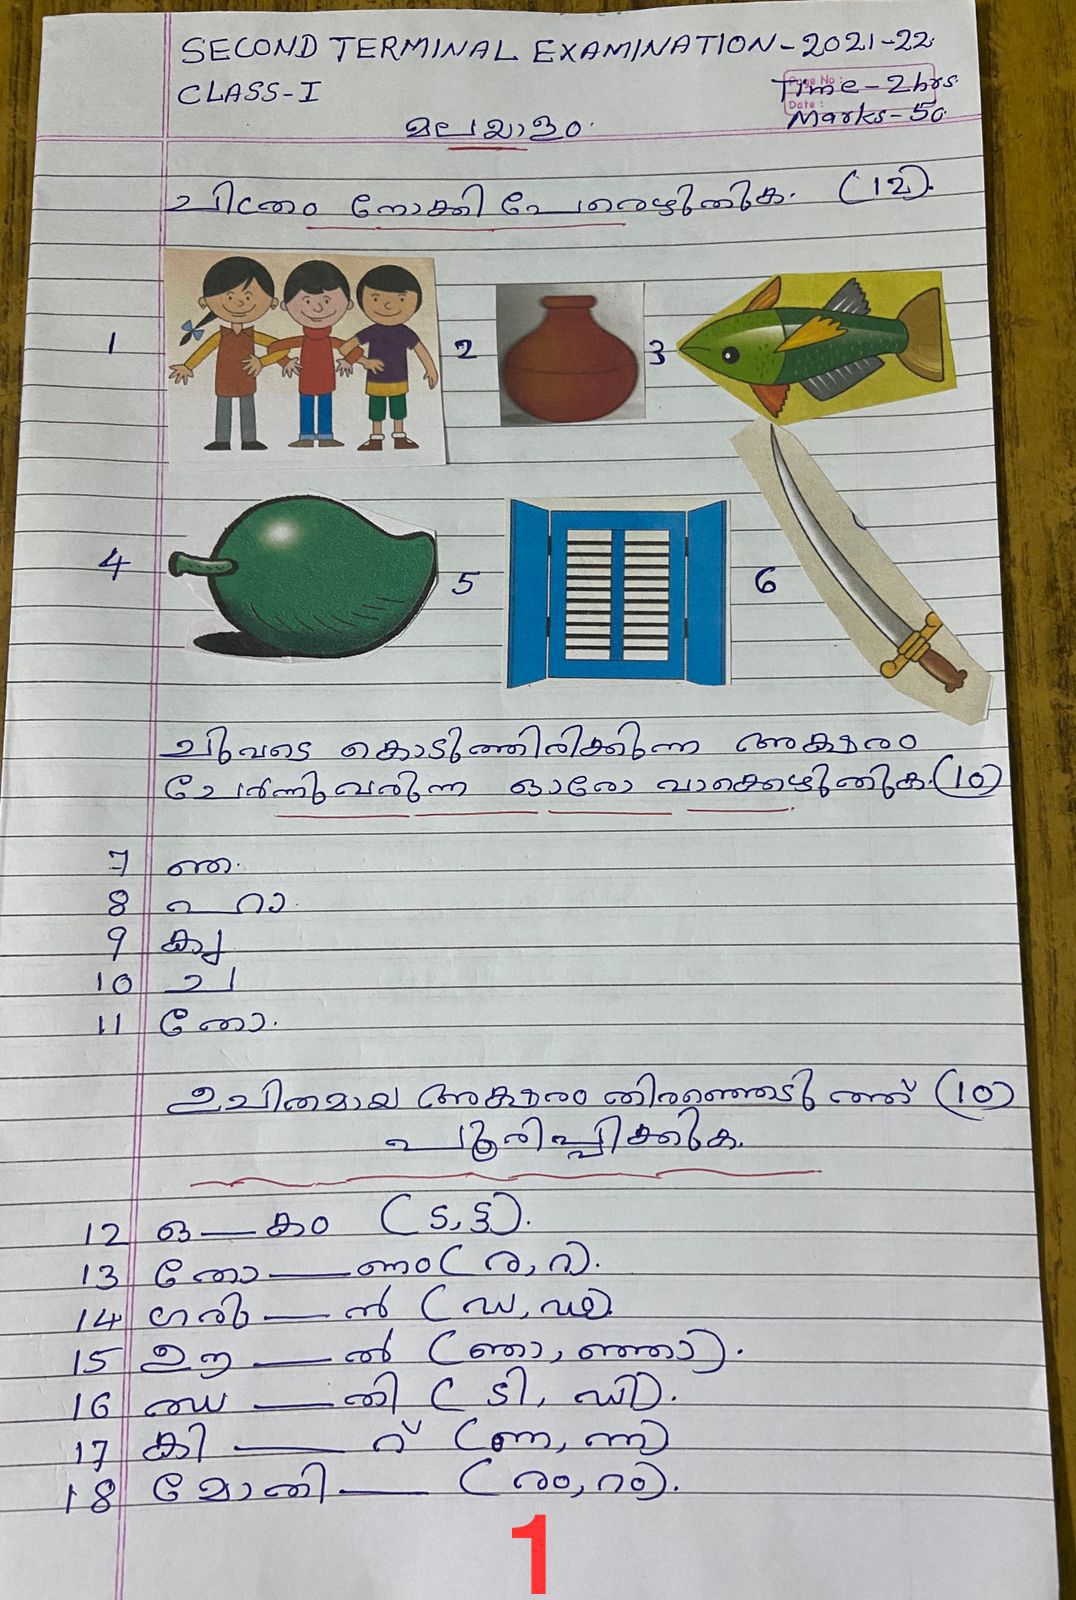 SECOND TERMINAL EXAMINATION-2021-22
CLASS-I
Page No:
Time-2hrs
Date:
Marks-50
മലയാളം
ചിത്രം നോക്കി പേരെഴുതുക. (12).
1 2 3
4 5 6
ചുവടെ കൊടുത്തിരിക്കുന്ന അക്ഷരം
ചേർന്നുവരുന്ന ഓരോ വാക്കെഴുതുക.(10)
7 ഞ.
8 പറാ
9 ക്യ
10 ച
11 തോ.
ഉചിതമായ അക്ഷരം തിരഞ്ഞെടുത്ത് (10)
പൂരിപ്പിക്കുക.
12 ഒ—കം (ട,ട്ട).
13 തോ—ണം(ര,റ).
14 ഗരു—ൻ (ഡ,ഢ)
15 ഊ—ൽ (ഞാ,ഞ്ഞാ).
16 ഝ—തി (ടി, ഡി).
17 കി—റ് (ണ, ന്ന)
18 മോതി— (രം,റം).
1